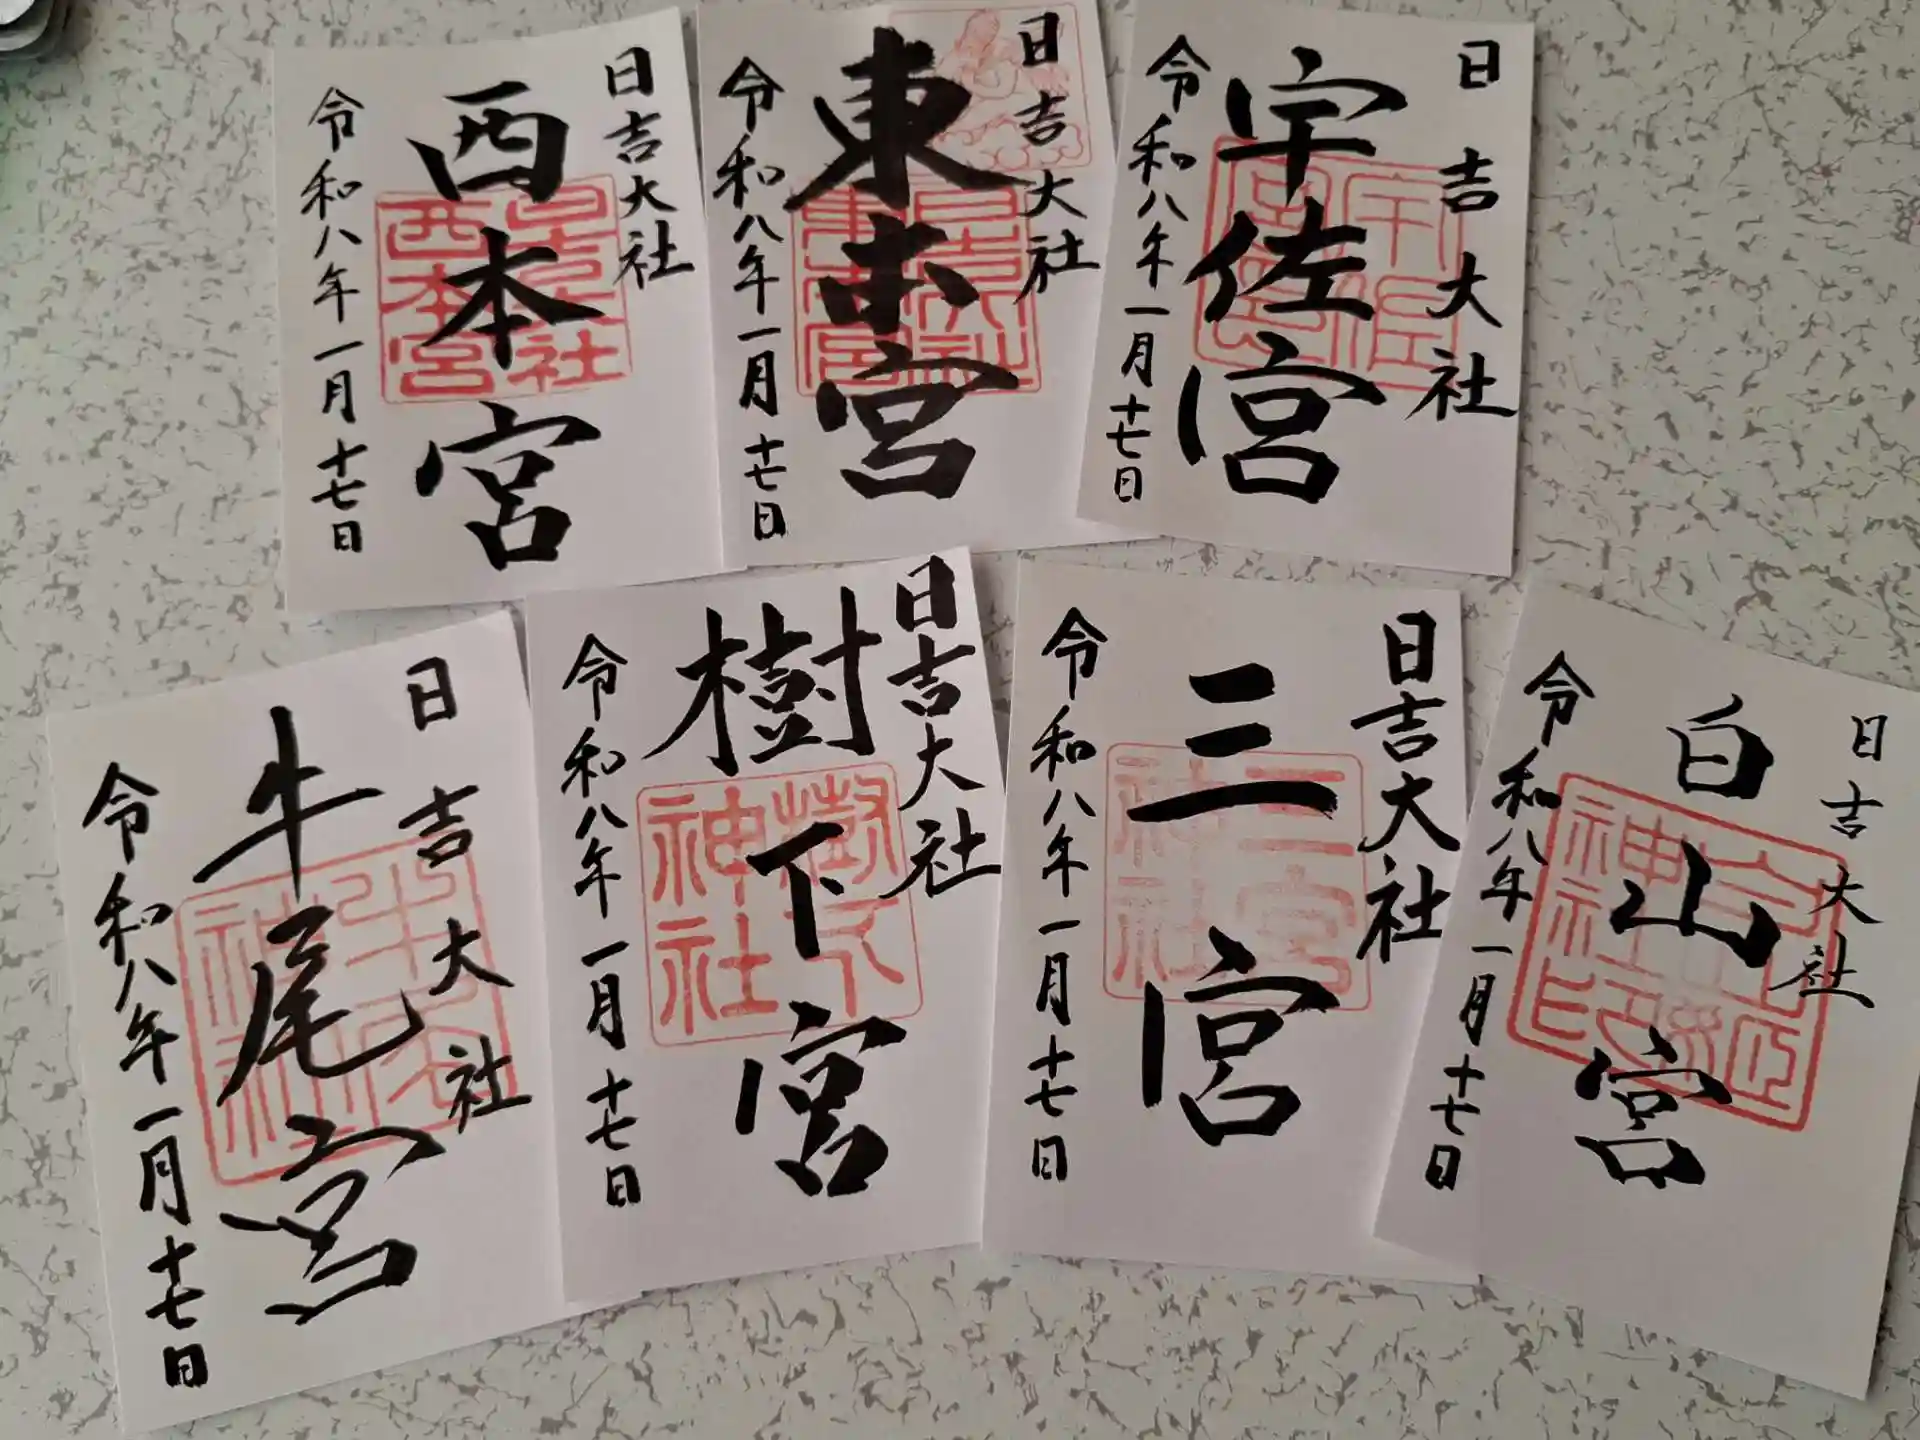 日吉大社
西本宮
令和八年一月十七日
日吉大社
西本宮
日吉大社
東本宮
令和八年一月十七日
日吉大社
東本宮
日吉大社
宇佐宮
令和八年一月十七日
宇佐
宮
日吉大社
牛尾宮
令和八年一月十七日
牛尾
神社
日吉大社
樹下宮
令和八年一月十七日
樹下
神社
日吉大社
三宮
令和八年一月十七日
三宮
神社
日吉大社
白山宮
令和八年一月十七日
神社印